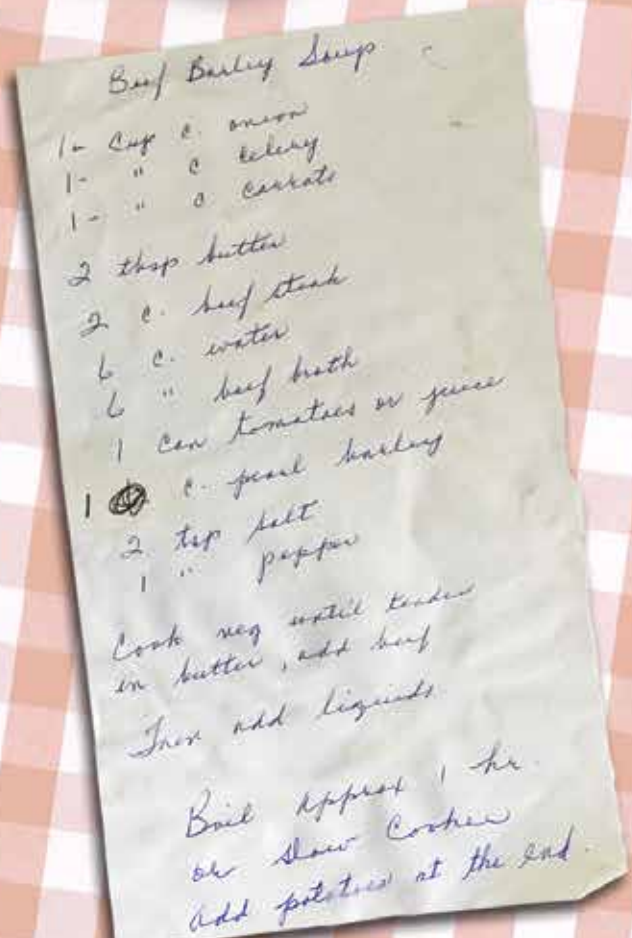 Beef Barley Soup
1- Cup c. onion
1- " c celery
1- " c carrots
2 tbsp butter
2 c. beef steak
6 c. water
6 " beef broth
1 can tomatoes or juice
1 c. pearl barley
2 tsp salt
1 " pepper
Cook veg until tender
in butter, add beef
Then add liquids
Boil approx 1 hr.
or slow cooker
add potatoes at the end.